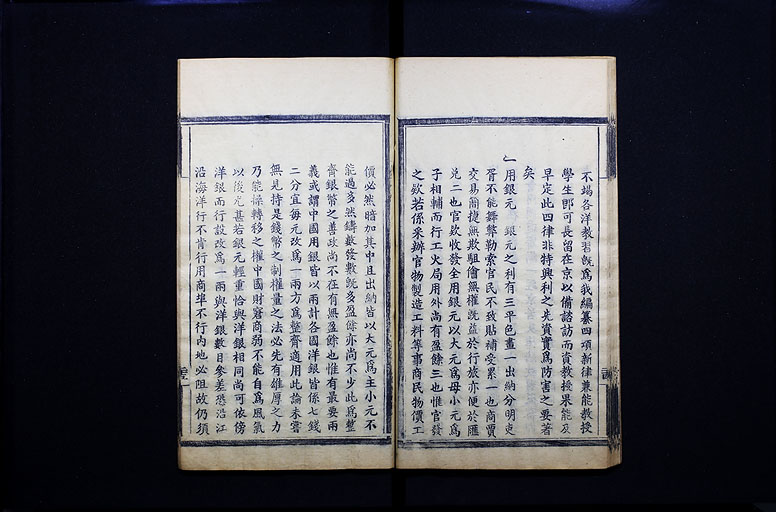 不竭各洋教習既為我編纂四項新律兼能教授
學生即可長留在京以備諮訪而資教授果能及
早定此四律非特興利之先資實為防害之要著
矣
一用銀元 銀元之利有三平色畫一出納分明吏
胥不能舞弊勒索官民不致貼補受累一也商賈
交易簡捷無欺駔儈無權既益於行旅亦便於匯
兌二也官欵收發全用銀元以大元為母小元為
子相輔而行工火局用外尚有盈餘三也惟官發
之欵若係采辦官物製造工料等事商民物價工
價必然暗加其中且出納皆以大元為主小元不
能過多然鑄數發數既多盈餘亦尚不少此為整
齊銀幣之善政尚不在有無盈餘也惟有最要兩
義或謂中國用銀皆以兩計各國洋銀皆係七錢
二分宜每元改為一兩方為整齊適用此論未嘗
無見特是錢幣之制權量之法必先有雄厚之力
乃能操轉移之權中國財窘商弱不能自為風氣
以後尤甚若銀元輕重恰與洋銀相同尚可依傍
洋銀而行設改為一兩與洋銀數目參差恐沿江
沿海洋行不肯行用商埠不行內地必阻故仍須